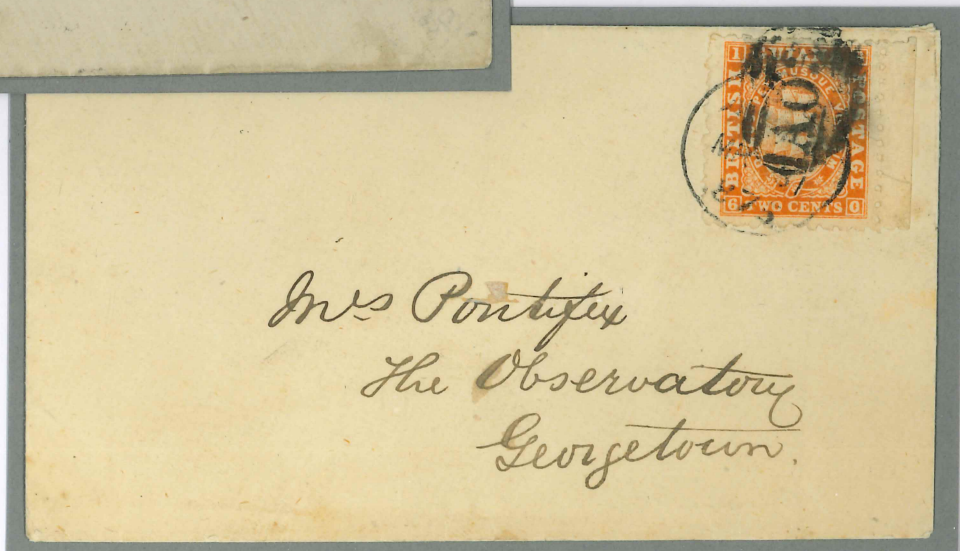 1
BRITISH
POSTAGE
A01
6 TWO CENTS 0
Mrs Pontifex
The Observatory
Georgetown.